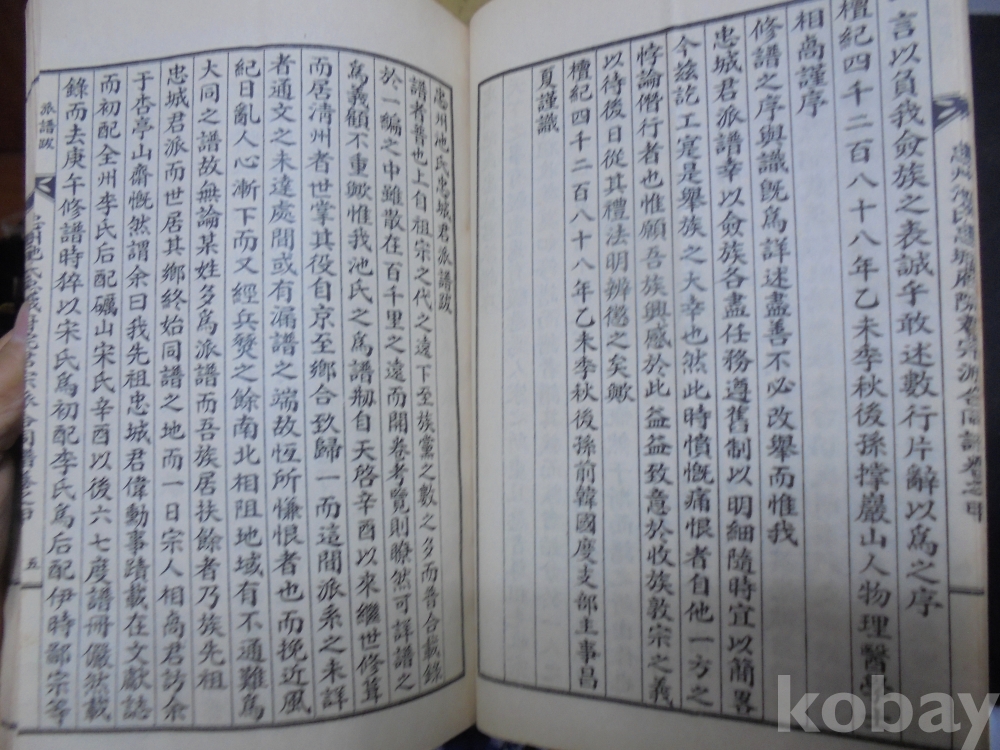 言以負我僉族之表誠乎敢述數行片辭以爲之序
檀紀四千二百八十八年乙未季秋後孫撑巖山人物理醫學
相高謹序
修譜之序與識旣爲詳述盡善不必改舉而惟我
忠城君派譜幸以僉族各盡任務遵舊制以明細隨時宜以簡畧
今玆訖工寔是舉族之大幸也然此時憤慨痛恨者自他一方之
悖論僭行者也惟願吾族興感於此益益致意於收族敦宗之義
以待後日從其禮法明辨懲之矣歟
檀紀四千二百八十八年乙未季秋後孫前韓國度支部主事昌
夏謹識
忠州池氏忠城君派譜跋
譜者普也上自祖宗之代之遠下至族黨之數之多而普合載錄
於一編之中雖散在百千里之遠而開卷考覽則瞭然可詳譜之
爲義顧不重歟惟我池氏之爲譜刱自天啓辛酉以來繼世修葺
而居淸州者世掌其役自京至鄕合致歸一而這間派系之未詳
者通文之未達處間或有漏譜之端故恆所慊恨者也而挽近風
紀日亂人心漸下而又經兵燹之餘南北相阻地域有不通難爲
大同之譜故無論某姓多爲派譜而吾族居扶餘者乃族先祖
忠城君派而世居其鄕終始同譜之地而一日宗人相高君訪余
于杏亭山齋慨然謂余曰我先祖忠城君偉勳事蹟載在文獻誌
而初配全州李氏后配礪山宋氏辛酉以後六七度譜冊儼然載
錄而去庚午修譜時猝以宋氏爲初配李氏爲后配伊時鄙宗等
派譜跋
五
kobay